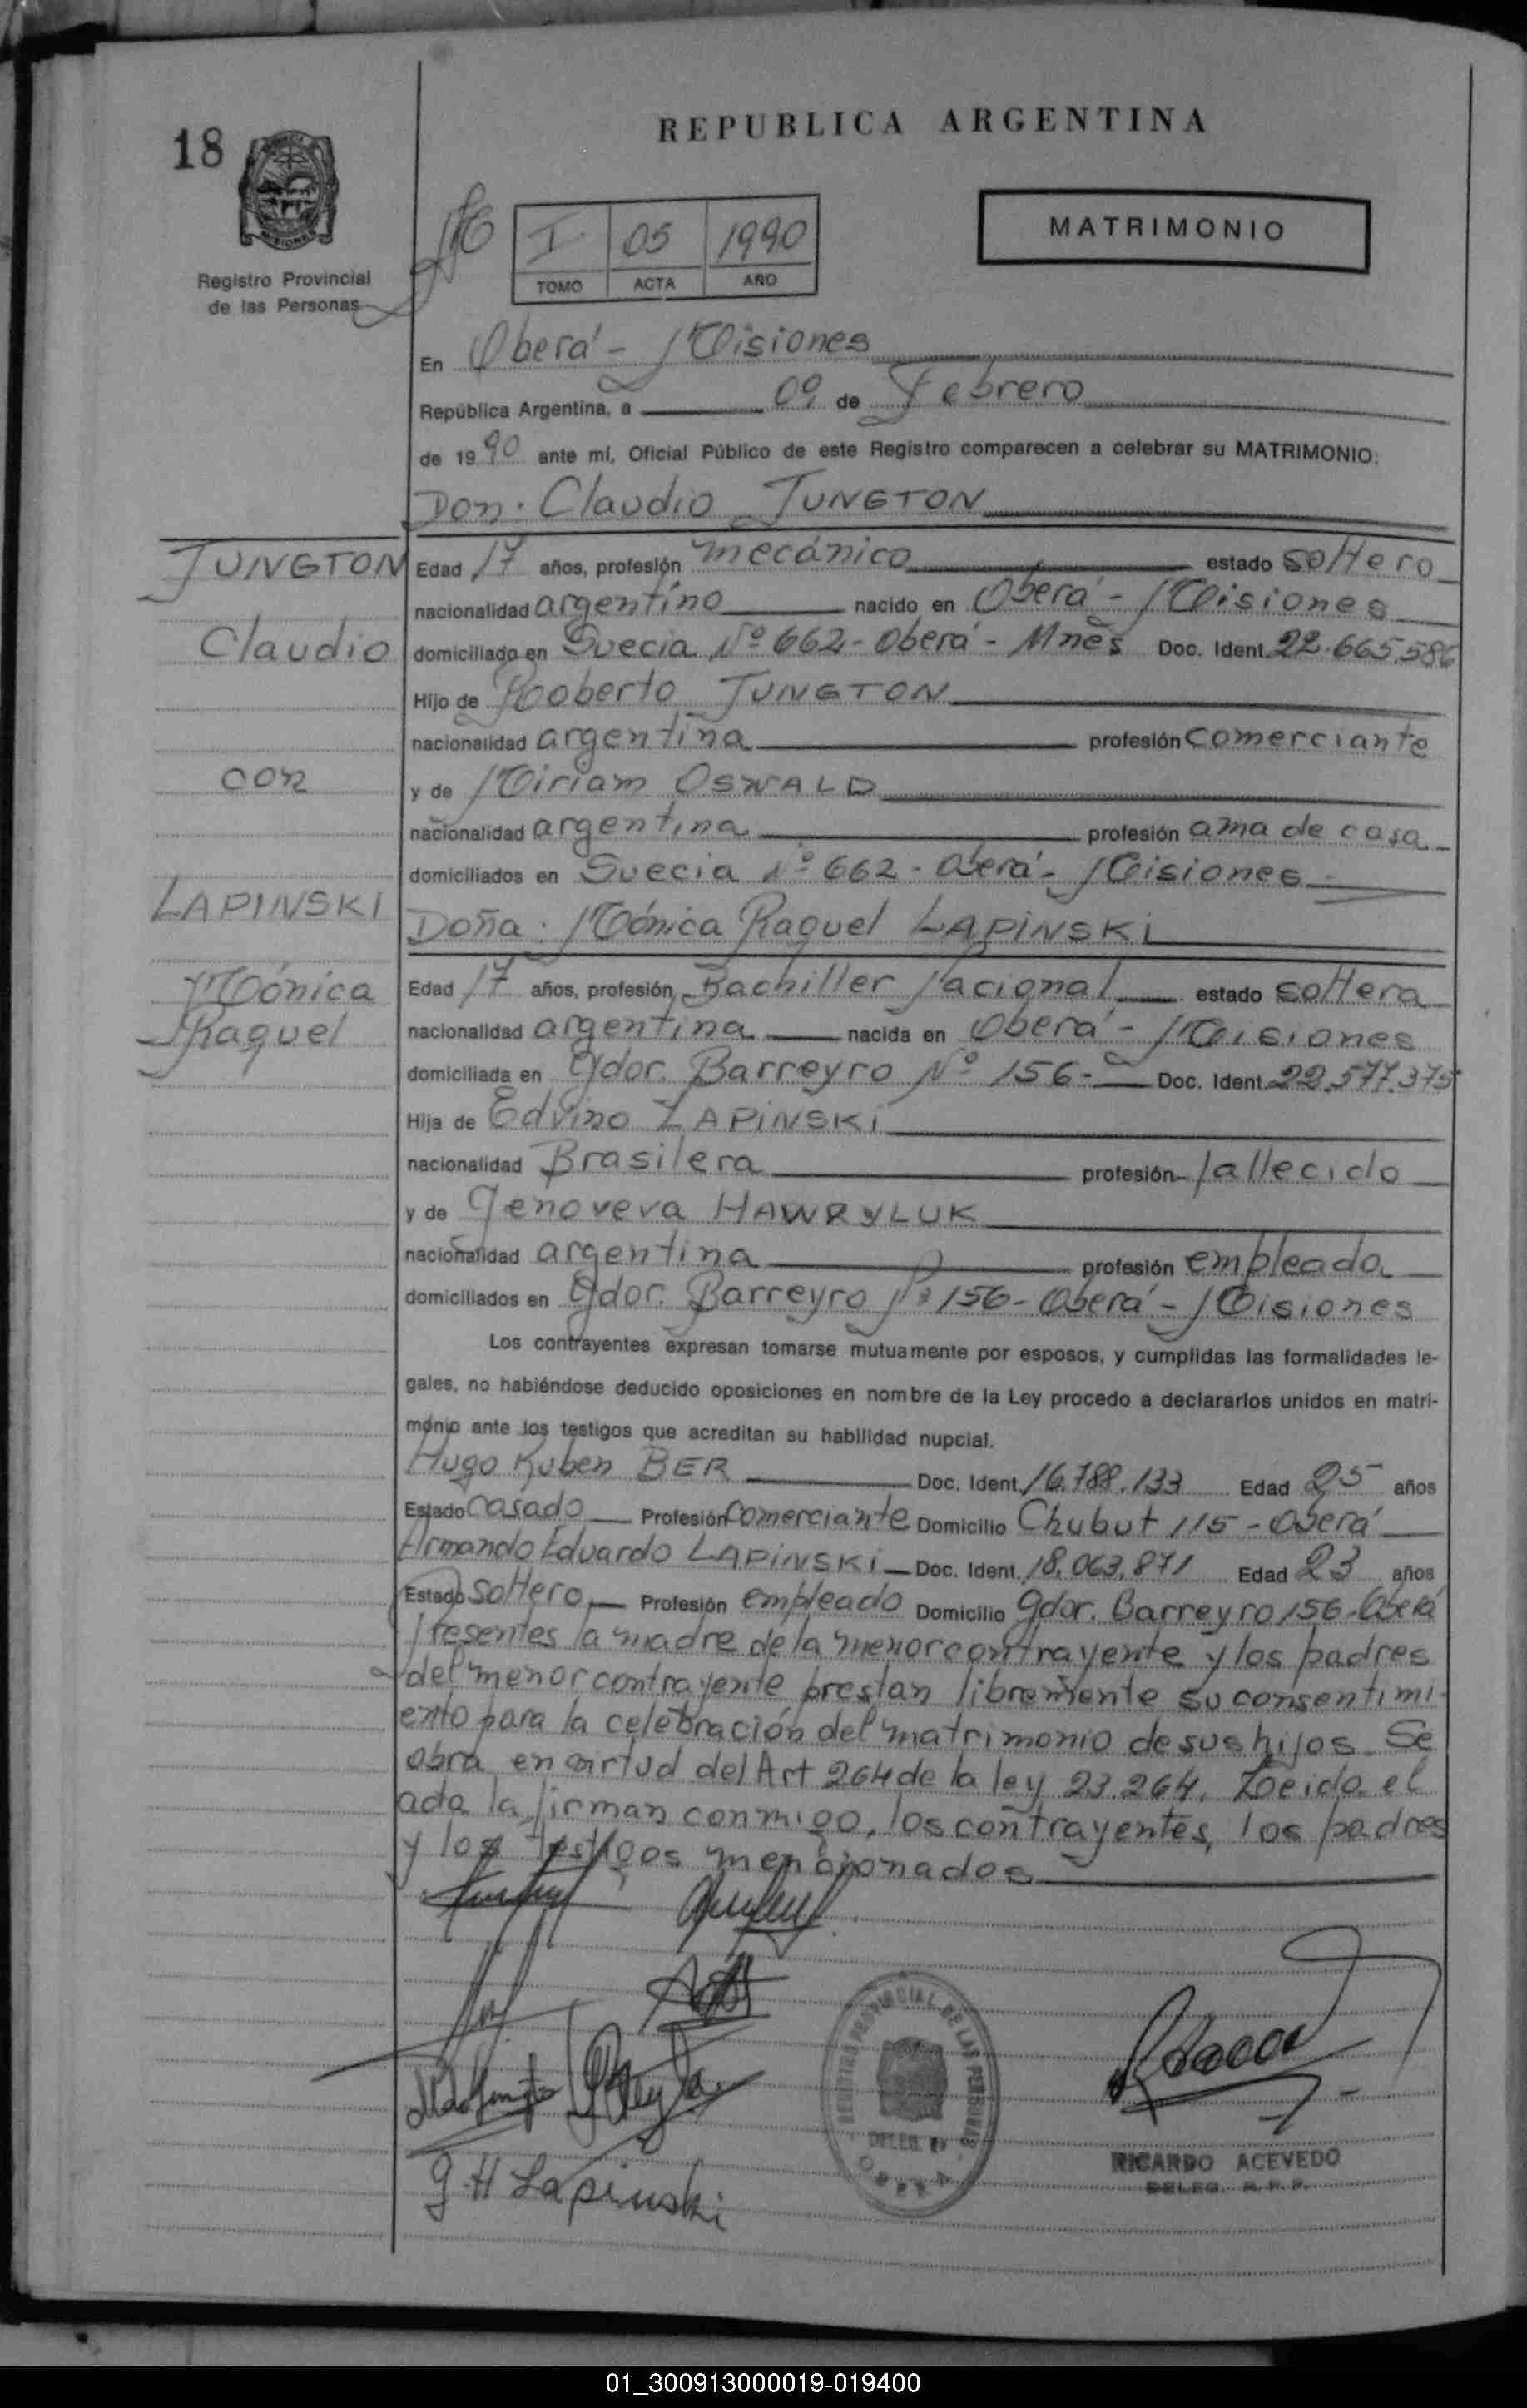 REPUBLICA ARGENTINA
18
MISIONES
Registro Provincial
de las Personas
I 05 1990
TOMO ACTA AÑO
MATRIMONIO
En Oberá - Misiones
República Argentina, a 09 de Febrero
de 1990 ante mí, Oficial Público de este Registro comparecen a celebrar su MATRIMONIO:
Don. Claudio JUNGTON
JUNGTON
Claudio
con
LAPINSKI
Mónica
Raquel
Edad 17 años, profesión mecánico estado soltero
nacionalidad argentino nacido en Oberá - Misiones
domiciliado en Suecia Nº 662 - Oberá - Mnes Doc. Ident. 22.665.586
Hijo de Rooberto JUNGTON
nacionalidad argentina profesión comerciante
y de Miriam OSWALD
nacionalidad argentina profesión ama de casa.-
domiciliados en Suecia Nº 662 - Oberá - Misiones
Doña. Mónica Raquel LAPINSKI
Edad 17 años, profesión Bachiller Nacional estado soltera
nacionalidad argentina nacida en Oberá - Misiones
domiciliada en Gdor. Barreyro Nº 156 - Doc. Ident. 22.577.375
Hija de Edvino LAPINSKI
nacionalidad Brasilera profesión fallecido
y de Genoveva HAWRYLUK
nacionalidad argentina profesión empleada
domiciliados en Gdor. Barreyro Nº 156 - Oberá - Misiones
Los contrayentes expresan tomarse mutuamente por esposos, y cumplidas las formalidades le-
gales, no habiéndose deducido oposiciones en nombre de la Ley procedo a declararlos unidos en matri-
monio ante los testigos que acreditan su habilidad nupcial.
Hugo Ruben BER Doc. Ident. 16.788.133 Edad 25 años
Estado casado Profesión comerciante Domicilio Chubut 115 - Oberá
Armando Eduardo LAPINSKI Doc. Ident. 18.063.871 Edad 23 años
Estado soltero Profesión empleado Domicilio Gdor. Barreyro 156 - Oberá
Presentes la madre de la menor contrayente y los padres
del menor contrayente prestan libremente su consentimi-
ento para la celebración del matrimonio de sus hijos. Se
obra en virtud del Art 264 de la ley 23.264. Leida el
acta la firman conmigo, los contrayentes, los padres
y los testigos mencionados
REGISTRO PROVINCIAL DE LAS PERSONAS
DELEG.
OBERA
G H Lapinski
RICARDO ACEVEDO
DELEG. R.P.P.
01_300913000019-019400